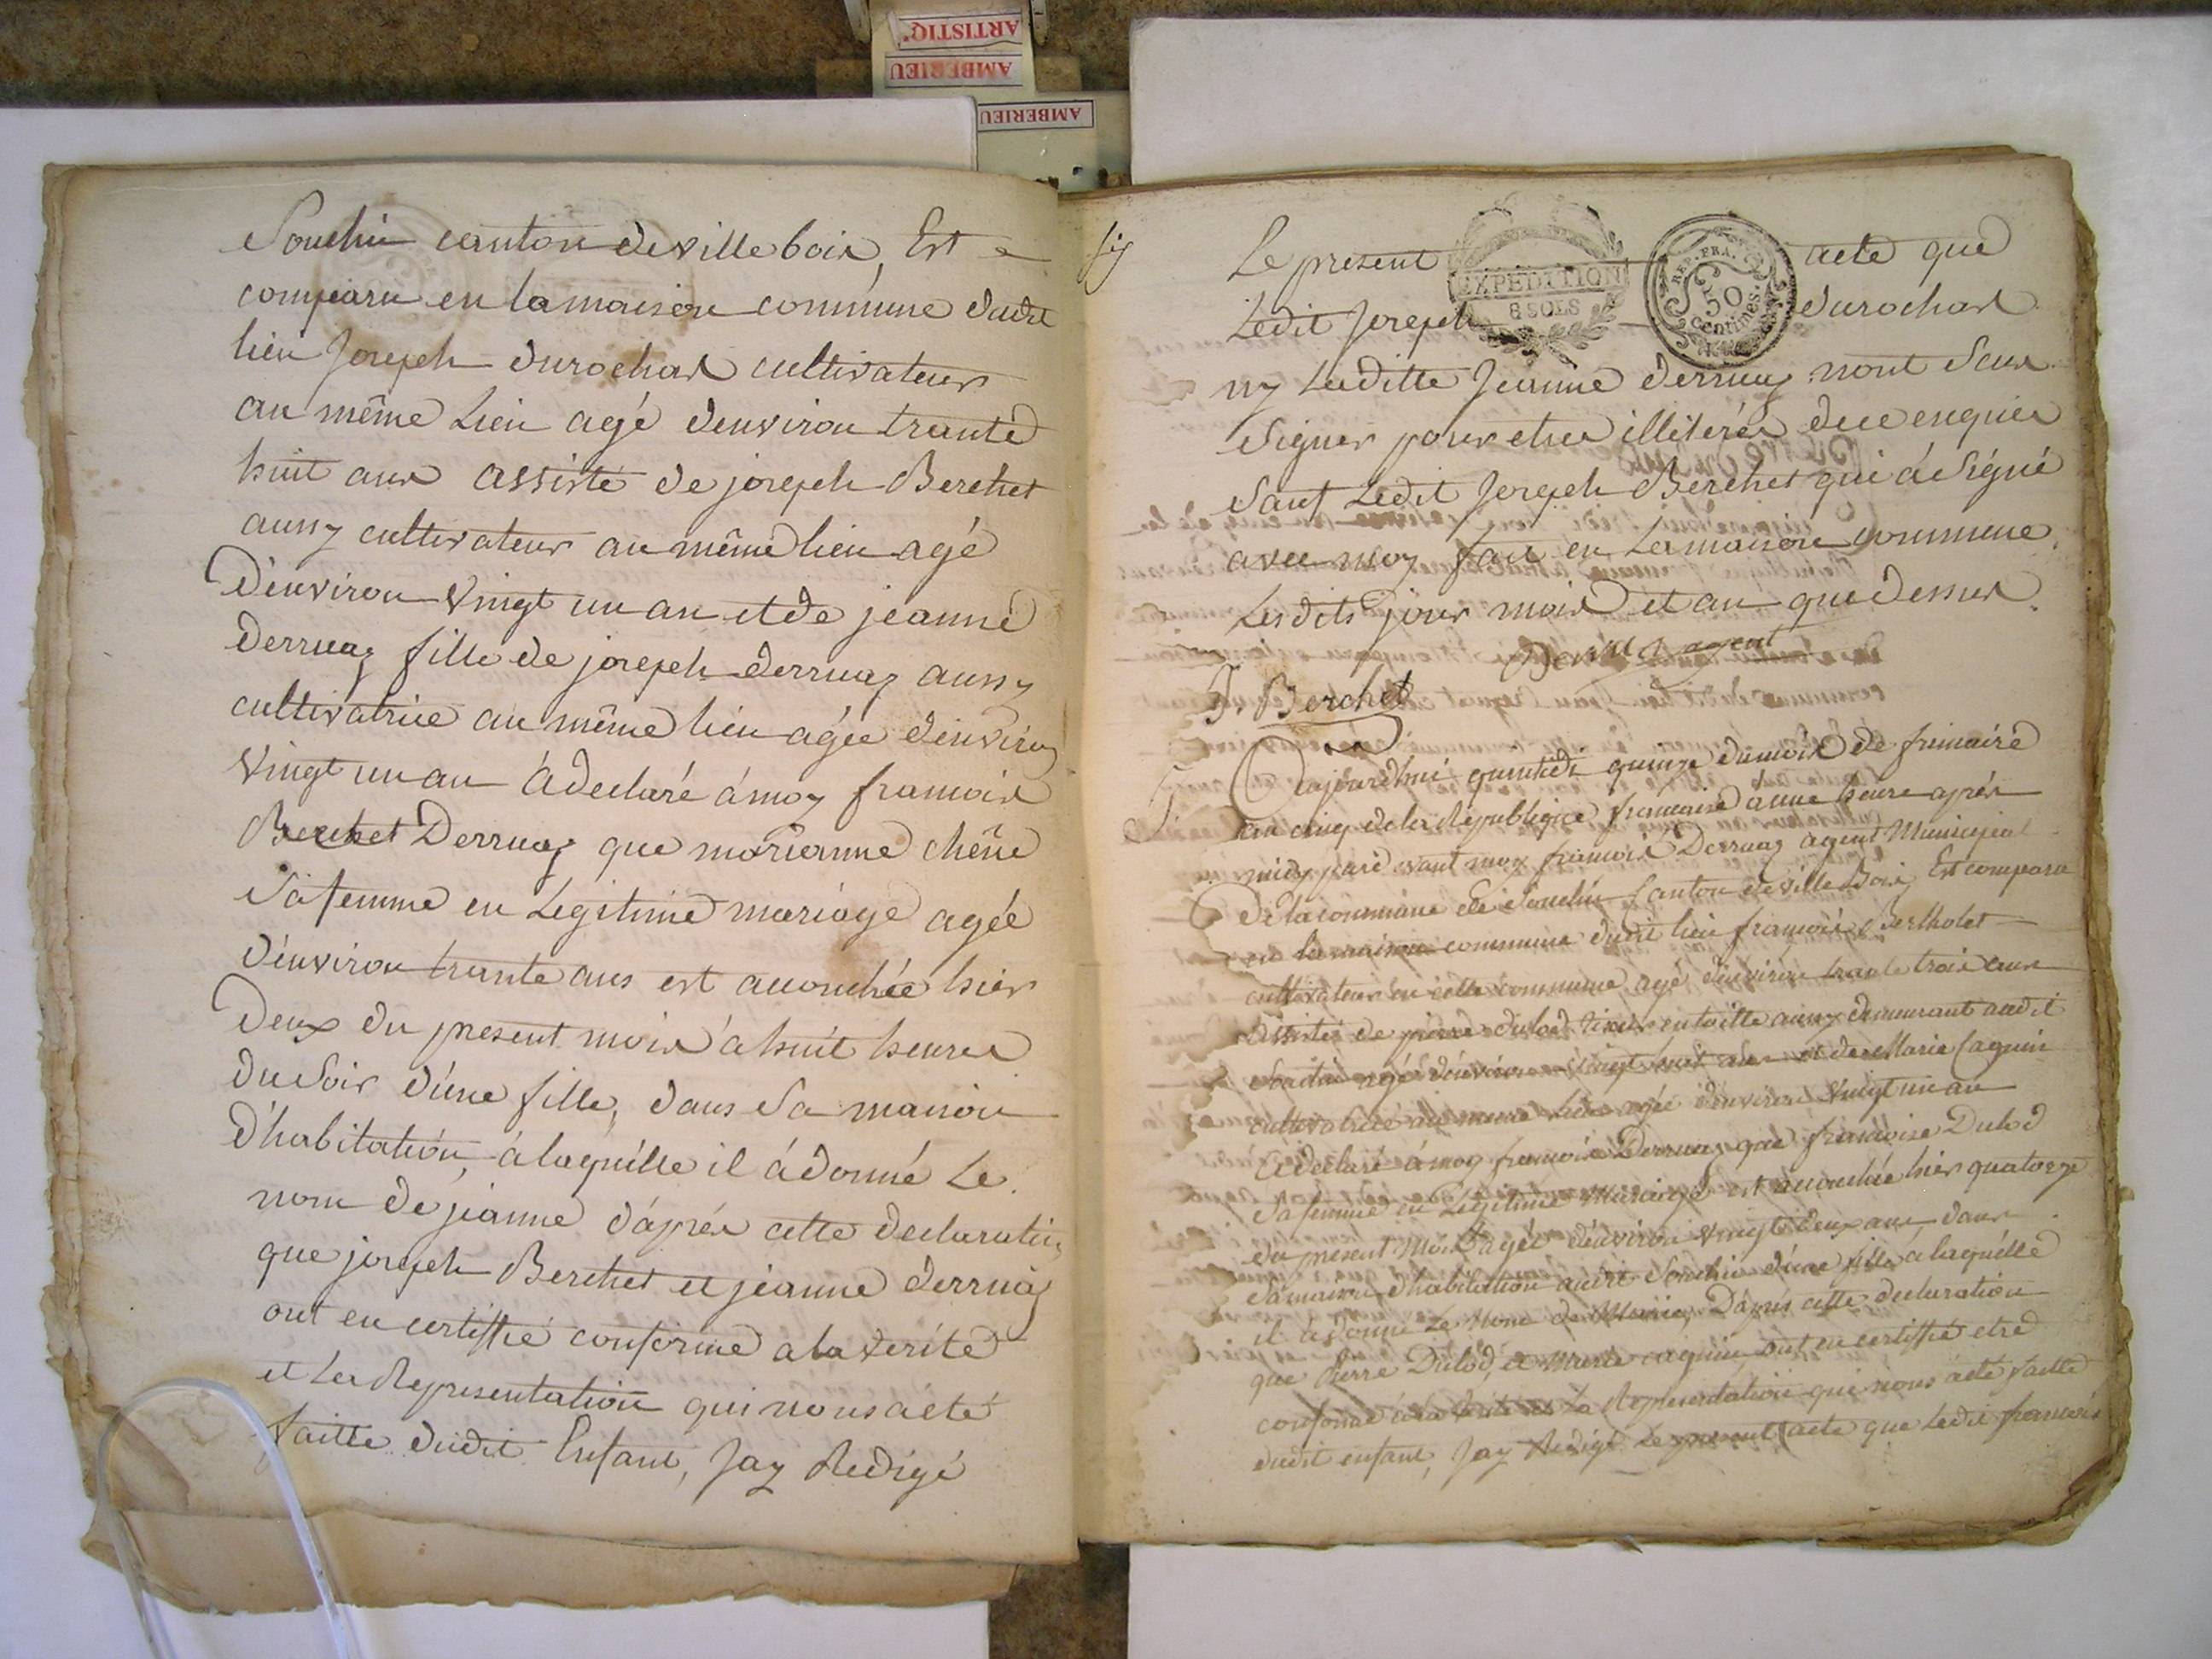 ARTISTIQ
AMBERIEU
AMBERIEU
Souclin canton de ville bois, Est
comparu en la maison commune dudit
lieu Joseph durochat cultivateur
au même Lieu agé denviron trante
huit ans assisté de joseph Berchet
aussy cultivateur au même lieu agé
D'environ Vingt un an et de jeanne
derruaz fille de joseph derruaz aussy
cultivatrice au même lieu agée denviron
Vingt un an á declaré á moy francois
Berchet Derruaz que marianne chêne
sa femme en Legitime mariage agée
d'environ trante ans est acouchée hier
deux du present mois á huit heures
du Soir d'une fille, dans Sa maison
d'habitation, á laquélle il á donné Le
nom de jeanne d'áprés cette declaration
que joseph Berchet et jeanne derruaz
ont en certiffié conforme a la verité
et La Representation qui nous á eté
faitte dudit Enfant, Jay Redigé
Le present acte que
EXPEDITION
8 SOLS
REP. FRA.
50
centimes
Ledit Joseph durochat
ny Laditte Jeanne derruaz nont Seus
signer pour etre illiterés de ce enquis
Sauf Ledit Joseph Berchet qui á Signé
avec moy fait en La maison commune
Lesdits jour mois et an que dessus.
agent
J. Berchet
Aujourdhui quintidi quinze du mois de frimaire
an cinq de la Republique francaise á une heure aprés
midy pardevant moy francois Derruaz agent Municipal
De la commune de Souclin Canton de ville Bois Est comparu
en la maison commune dudit lieu francois Bertholet
cultivateur en cette commune agé denviron trante trois ans
assisté de pierre dulod tixier en toille aussy demeurant audit
Souclin agé d'environ Vingt huit ans et de Marie Caguin
cultivatrice au meme Lieu agée denviron Vingt un an
á declaré á moy francois Derruaz que francoise Dulod
Sa femme en Legitime Mariage est acouchée hier quatorze
du present Mois agée d'environ vingt deux ans, dans
Sa maison d'habitation audit Souclin d'une fille á laquélle
il á donné Le Nom de Marie, D'áprés cette declaration
que Pierre Dulod, et Marie caguin ont en certiffié etre
conforme á la Verité et La Representation qui nous á eté faitte
dudit enfant, Jay Redigé Le present acte que Ledit francois